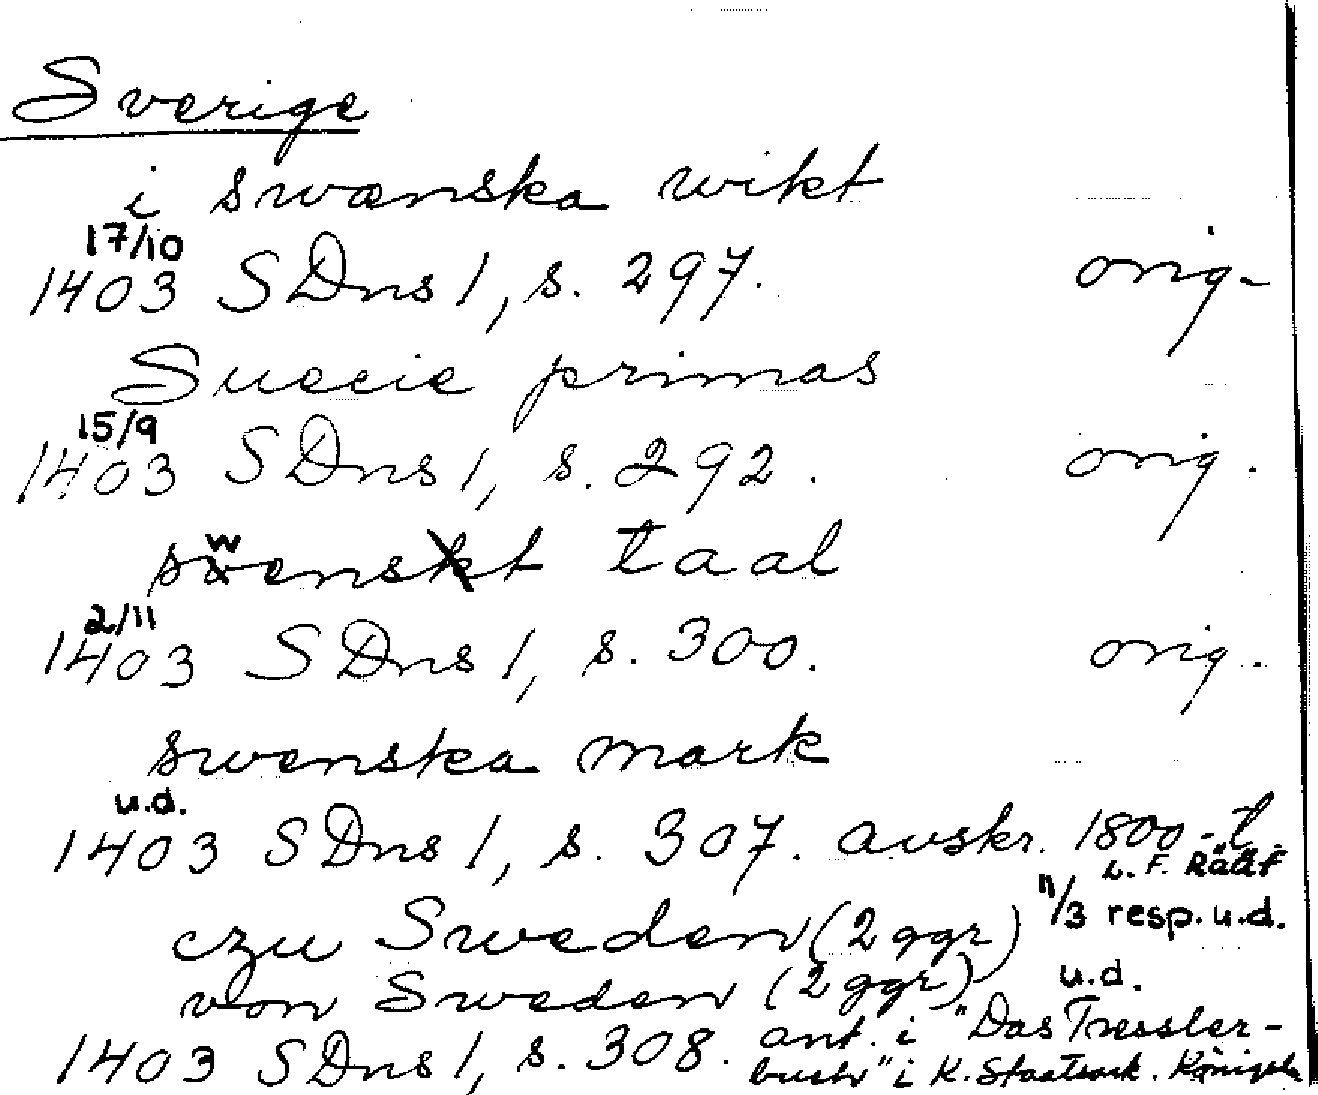 Sverige
i swænska wikt
17/10
1403 SDns 1, s. 297. orig.
Suecie primas
15/9
1403 SDns 1, s. 292. orig.
swenst taal
2/11
1403 SDns 1, s. 300. orig.
swenska mark
u.d.
1403 SDns 1, s. 307. avskr. 1800-t.
L. F. Rääf
czu Sweden (2 ggr) 11/3 resp. u.d.
von Sweden (2 ggr) u.d.
1403 SDns 1, s. 308. ant. i "Das Tressler-
buch" i K. Staatsark. Königsb